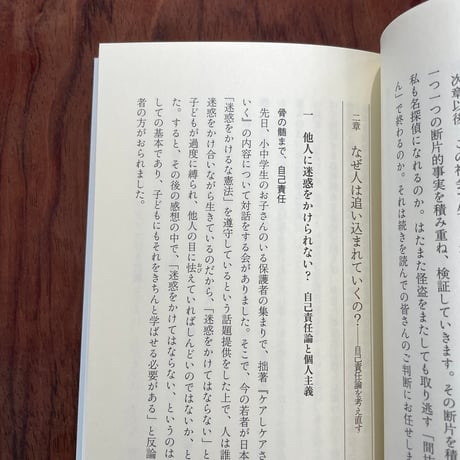 次章以後、この社会
一つ一つの断片的事実を積み重ね、検証していきます。その断片を
私も名探偵になれるのか。はたまた怪盗をまたしても取り逃す「間抜
ん」で終わるのか。それは続きを読んでの皆さんのご判断にお任せしま
二章 なぜ人は追い込まれていくのか?――自己責任論を考え直す
一 他人に迷惑をかけられない? 自己責任論と個人主義
骨の髄まで、自己責任
先日、小中学生のお子さんのいる保護者の集まりで、拙著『ケアしケアさ
いく』の内容について対話をする会がありました。そこで、今の若者が日本
「迷惑をかけるな憲法」を遵守しているという話題提供をした上で、人は誰
迷惑をかけ合いながら生きているのだから、「迷惑をかけてはならない」と
子どもが過度に縛られ、他人の目に怯えていればしんどいのではないか、と
た。すると、その後の感想の中で、「迷惑をかけてはならない、というのは
しての基本であり、子どもにもそれをきちんと学ばせる必要がある」と反論
者の方がおられました。